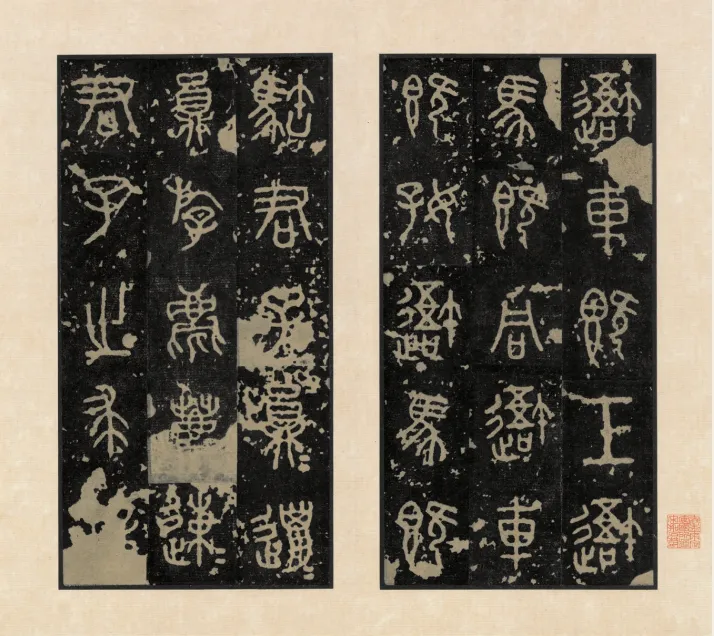 䢒車既工䢒
馬既同䢒車
既好䢒馬既
𩣡君子員邋
員斿麀鹿速
君子之求